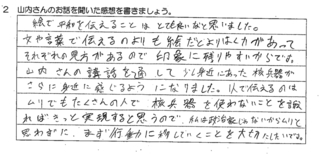 2 山内さんのお話を聞いた感想を書きましょう。
絵で平和を伝えることはとても良いなと思いました。
文や言葉で伝えるのよりも絵だとよりはく力があって
それぞれの見方があるので印象に残りやすいからです。
山内さんの講話を通して少し身近にあった核兵器が
さらに身近に感じるようになりました。1人で伝えるのは
ムリでもたくさんの人で核兵器を使わないことを訴え
ればきっと実現すると思うので、私は政治家じゃないからムリと
思わずに、まず行動に移していくことを大切にしたいです。